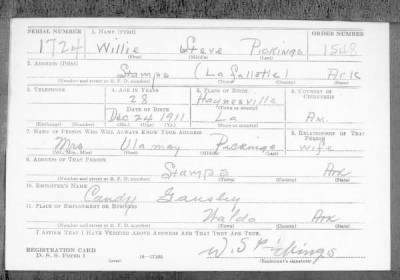 SERIAL NUMBER 1. NAME (PRINT) ORDER NUMBER
1724 Willie Steve Pickings 1548
(First) (Middle) (Last)
2. ADDRESS (PRINT)
Stamps (Lafallette) Ark
(Number and street or R. F. D. number) (Town) (County) (State)
3. TELEPHONE 4. AGE IN YEARS 5. PLACE OF BIRTH 6. COUNTRY OF CITIZENSHIP
28 Haynesville
(Town or county)
DATE OF BIRTH
Dec 24 1911 La Am.
(Exchange) (Number) (Mo.) (Day) (Yr.) (State or country)
7. NAME OF PERSON WHO WILL ALWAYS KNOW YOUR ADDRESS 8. RELATIONSHIP OF THAT PERSON
Mrs Ula may Pickings wife
(Mr., Mrs., Miss) (First) (Middle) (Last)
9. ADDRESS OF THAT PERSON
Stamps Ark
(Number and street or R. F. D. number) (Town) (County) (State)
10. EMPLOYER'S NAME
Candy
11. PLACE OF EMPLOYMENT OR BUSINESS
Waldo Ark
(Number and street or R. F. D. number) (Town) (County) (State)
I AFFIRM THAT I HAVE VERIFIED ABOVE ANSWERS AND THAT THEY ARE TRUE.
REGISTRATION CARD
D. S. S. FORM 1 (over) 16—17105 W. S. Pickings
(Registrant's signature)